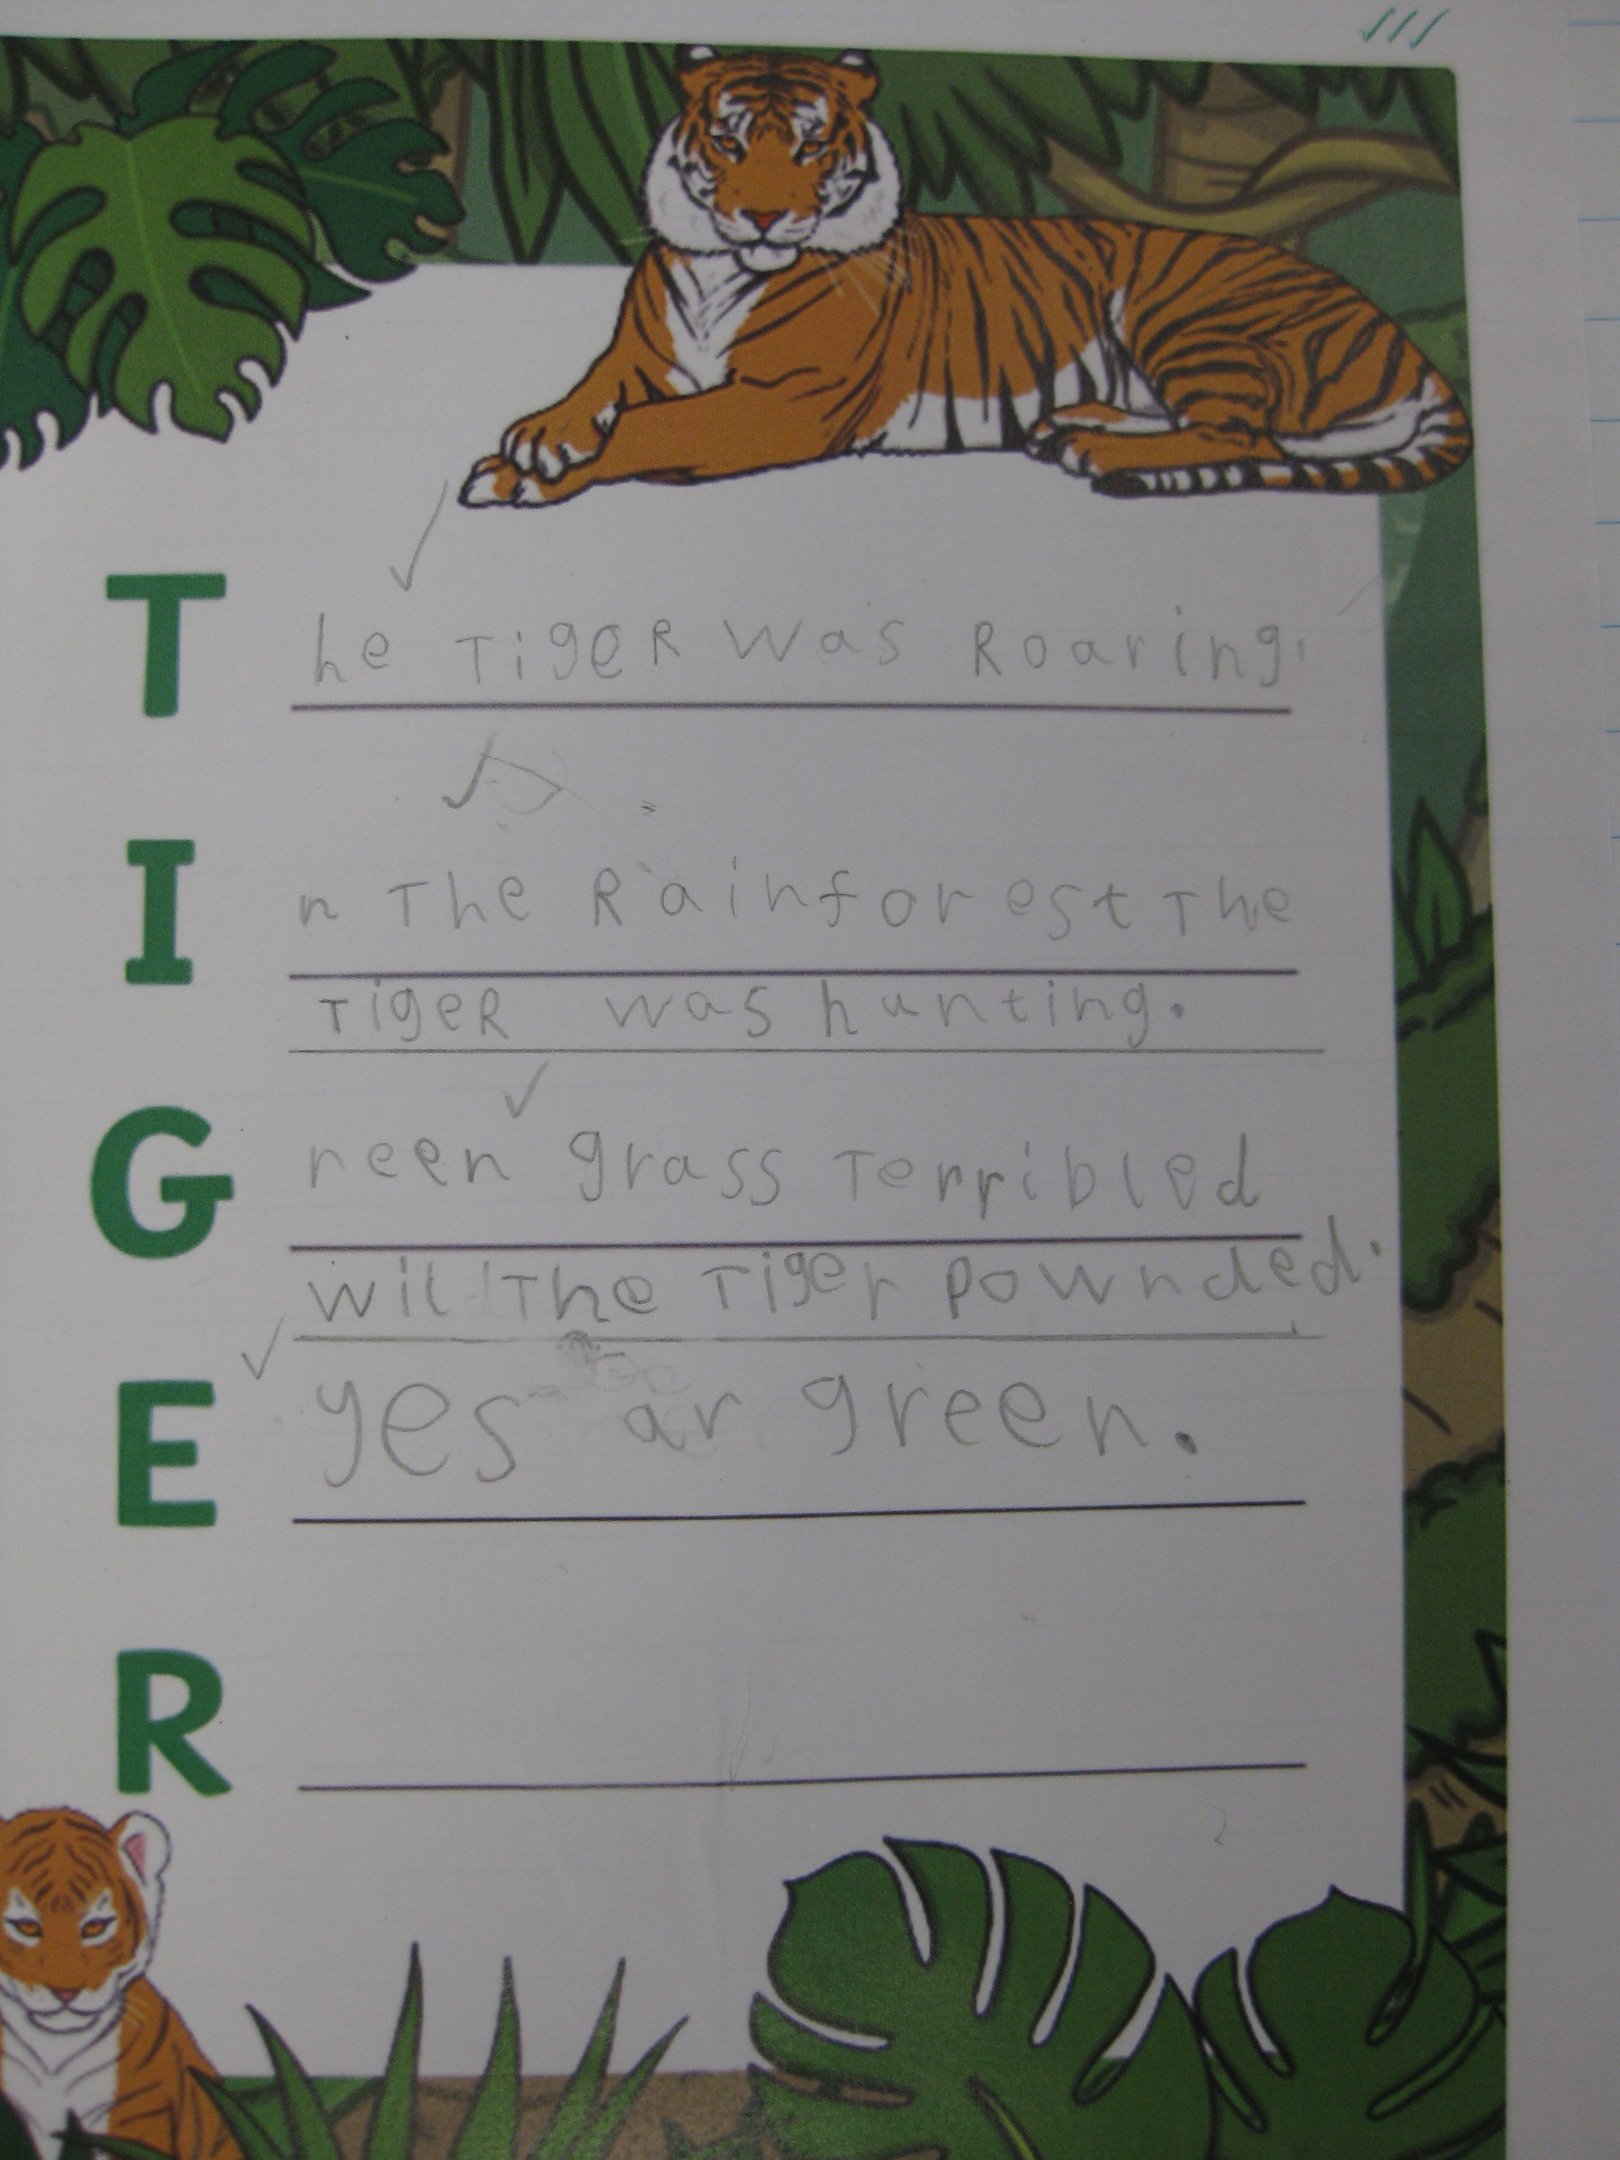 The TiGeR was Roaring.
In The Rainforest The
TigeR was hunting.
Green grass Terribled
wil The Tiger pownded.
Eyes ar green.
R